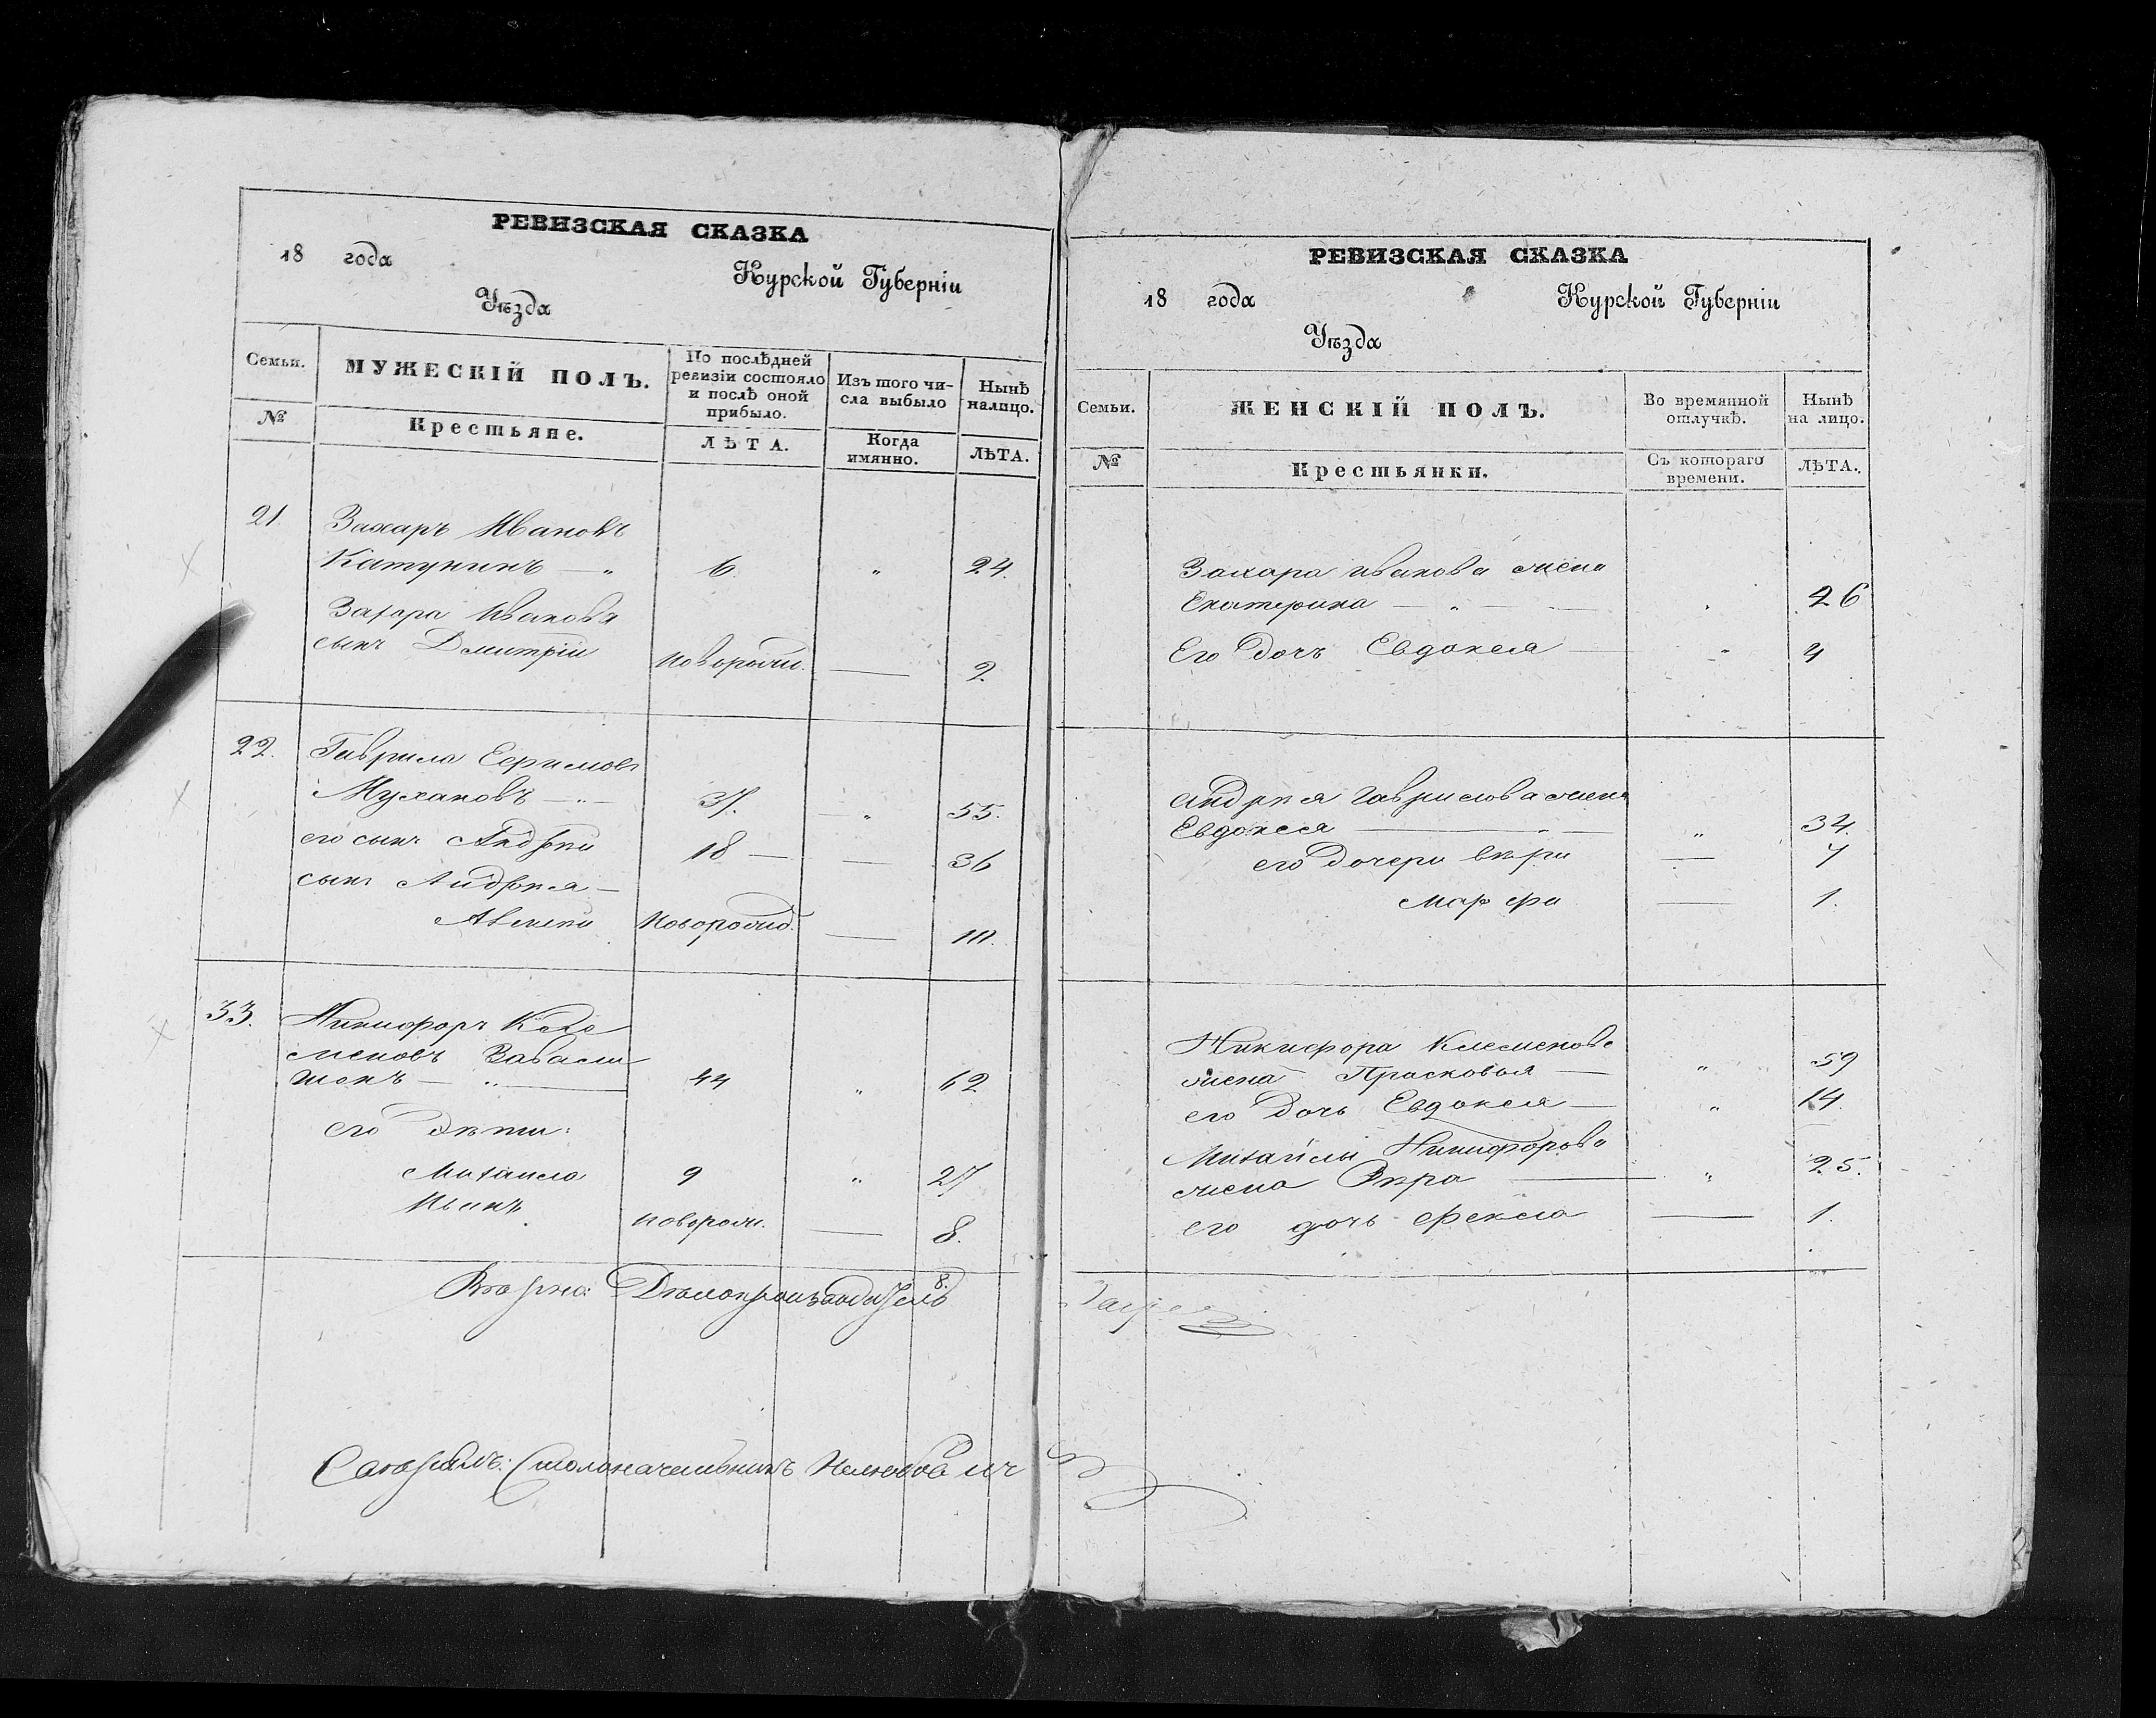 РЕВИЗСКАЯ СКАЗКА
18 года
Курской Губерніи
Уѣзда
Семьи.
№
МУЖЕСКІЙ ПОЛЪ.
Крестьяне.
По послѣдней
ревизіи состояло
и послѣ оной
прибыло.
ЛѢТА.
Изъ того чи-
сла выбыло
Когда
имянно.
Нынѣ
налицо.
ЛѢТА.
21. Захаръ Ивановъ
Катунинъ — „ 6. „ 24.
Захара Иванова
сынъ Дмитрій новорожд. — 2
22. Гаврила Ефимовъ
Мухановъ — „ — 37. — „ 55.
его сынъ Андрей 18 — — 36
сынъ Андрея —
новорожд. —
33. Никифоръ Кле
меновъ
44 „ 62
его дѣти:
Михаила 9 „ 27
Иванъ новорож. — 8.
8.
Вѣрно: Дѣлопроизводитель
Столоначальникъ
РЕВИЗСКАЯ СКАЗКА
18 года
Курской Губерніи
Уѣзда
Семьи.
№
ЖЕНСКІЙ ПОЛЪ.
Крестьянки.
Во времянной
отлучкѣ.
Съ котораго
времени.
Нынѣ
на лицо.
ЛѢТА.
Захара иванова жена
Екатерина — „ — 26
Его дочь Евдокея — „ 4
андрея гаврилова жена
Евдокея — „ — „ 34.
его дочери —
Марфа — 1.
Никифора Клеменова
жена Прасковья — „ 59
его дочь Евдокея — „ 14.
Михайлы Никифорова
жена Вѣра — „ 25.
его дочь Фекла — 1.